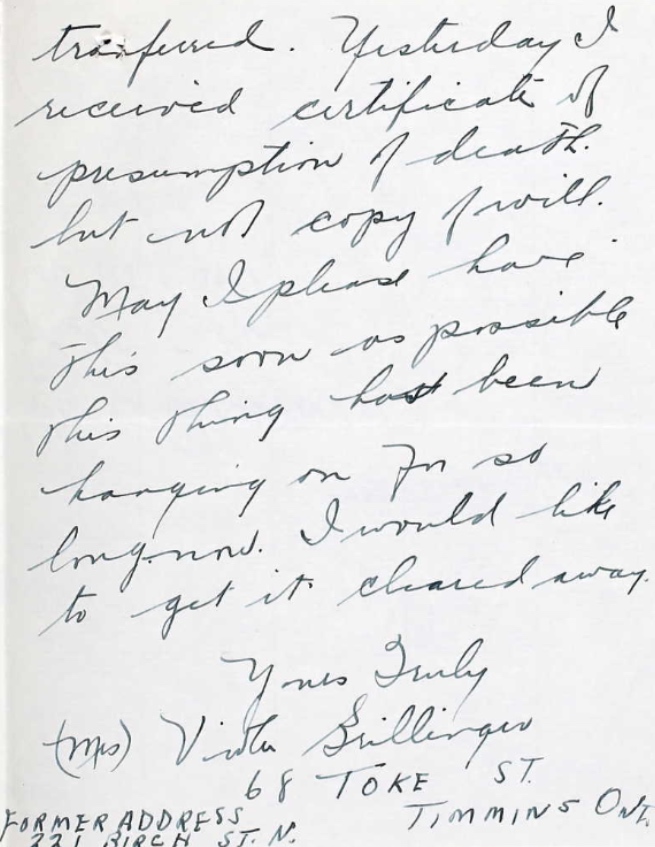 tranferred. Yesterday I
received certificate of
presumption of death.
but not copy of will.
May I please have
this soon as possible
this thing has been
hanging on for so
long now. I would like
to get it cleared away.
Yours Truly
(Mrs) Viola Grillinger
68 TOKE ST.
TIMMINS ONT.
FORMER ADDRESS
221 BIRCH ST. N.